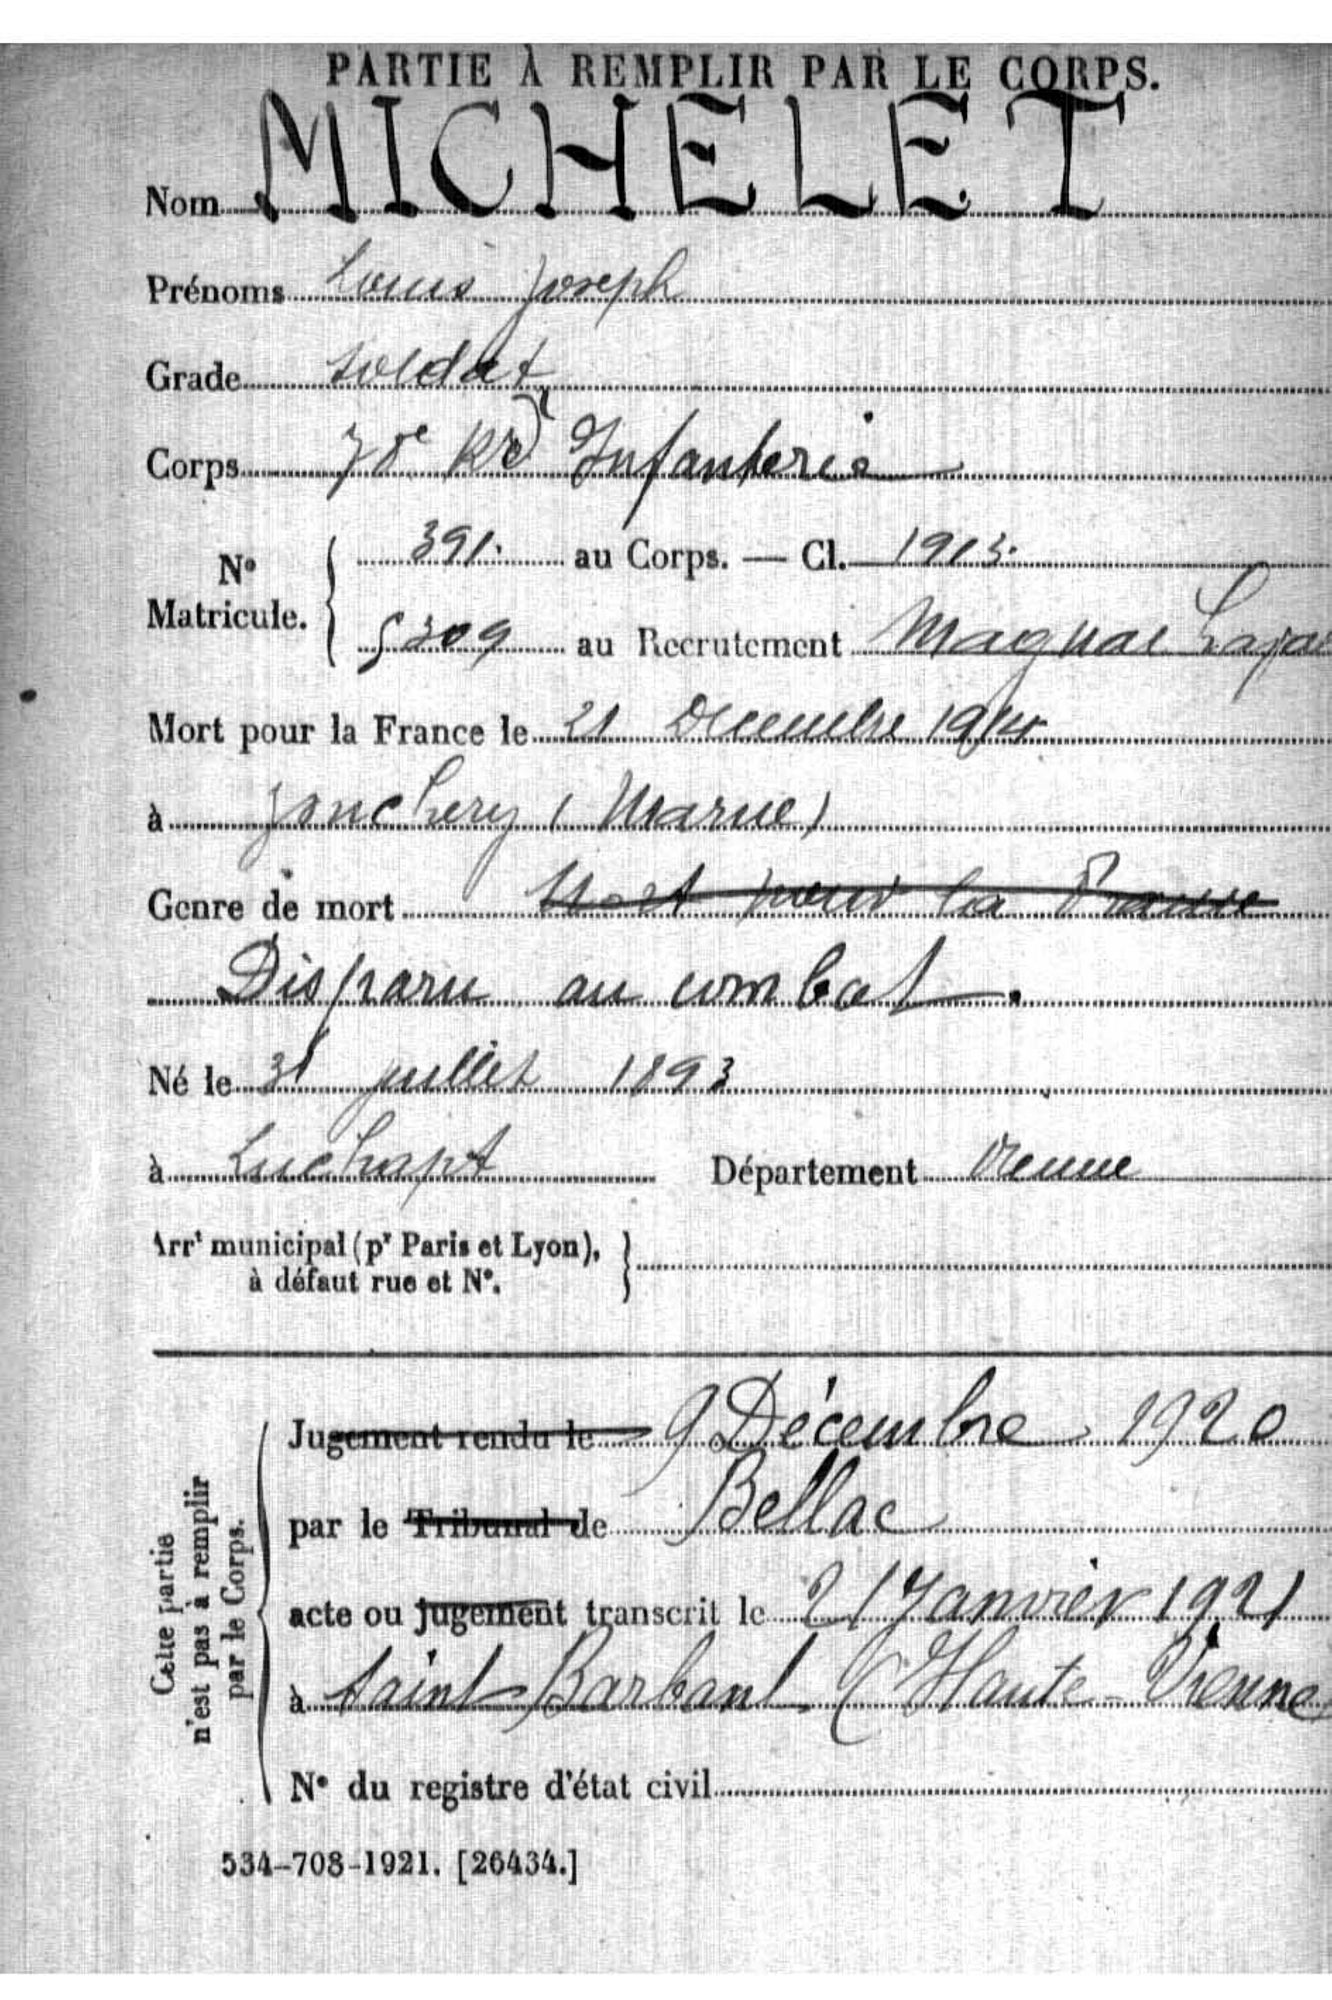 PARTIE À REMPLIR PAR LE CORPS.
Nom MICHELET
Prénoms Louis Joseph
Grade Soldat
Corps 78e Rt d'Infanterie
No Matricule. 391. au Corps. — Cl. 1913.
5309 au Recrutement Magnac
Mort pour la France le 21 Décembre 1914
à Jonchery (Marne)
Genre de mort Mort pour la France
Disparu au combat.
Né le 31 juillet 1893
à Luchapt Département Vienne
Arrt municipal (pr Paris et Lyon),
à défaut rue et No.
Cette partie
n'est pas à remplir
par le Corps.
Jugement rendu le 9 Décembre 1920
par le Tribunal de Bellac
acte ou jugement transcrit le 21 Janvier 1921
à Saint Barbant (Haute-Vienne)
No du registre d'état civil
534-708-1921. [26434.]